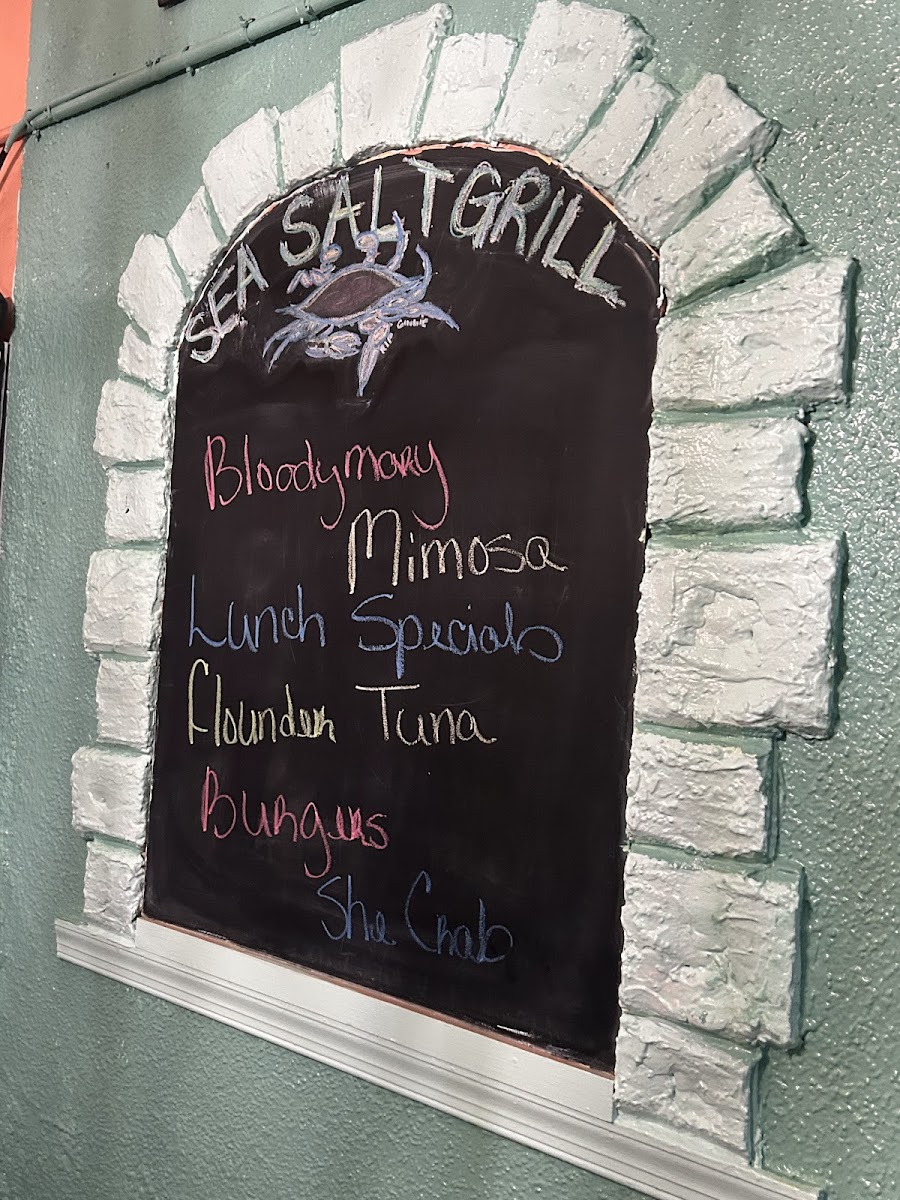 SEA SALT GRILL
Bloodymary
Mimosa
Lunch Specials
Flounder Tuna
Burgers
She Crab